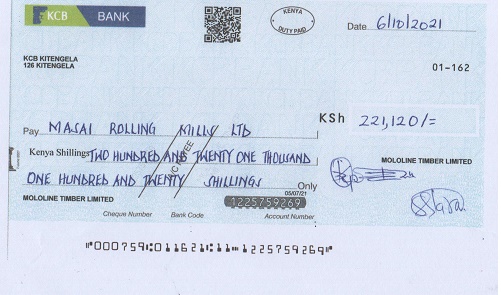 KCB BANK
KENYA
DUTY PAID
Date 6/10/2021
KCB KITENGELA
126 KITENGELA
01-162
KSh 221,120/=
Pay MASAI ROLLING MILLS LTD
Kenya Shillings TWO HUNDRED AND TWENTY ONE THOUSAND
ONE HUNDRED AND TWENTY SHILLINGS Only
MOLOLINE TIMBER LIMITED
05/07/21
MOLOLINE TIMBER LIMITED
1225759269
Cheque Number Bank Code Account Number
⑈000759⑆011621⑆11⑈1225759269⑈